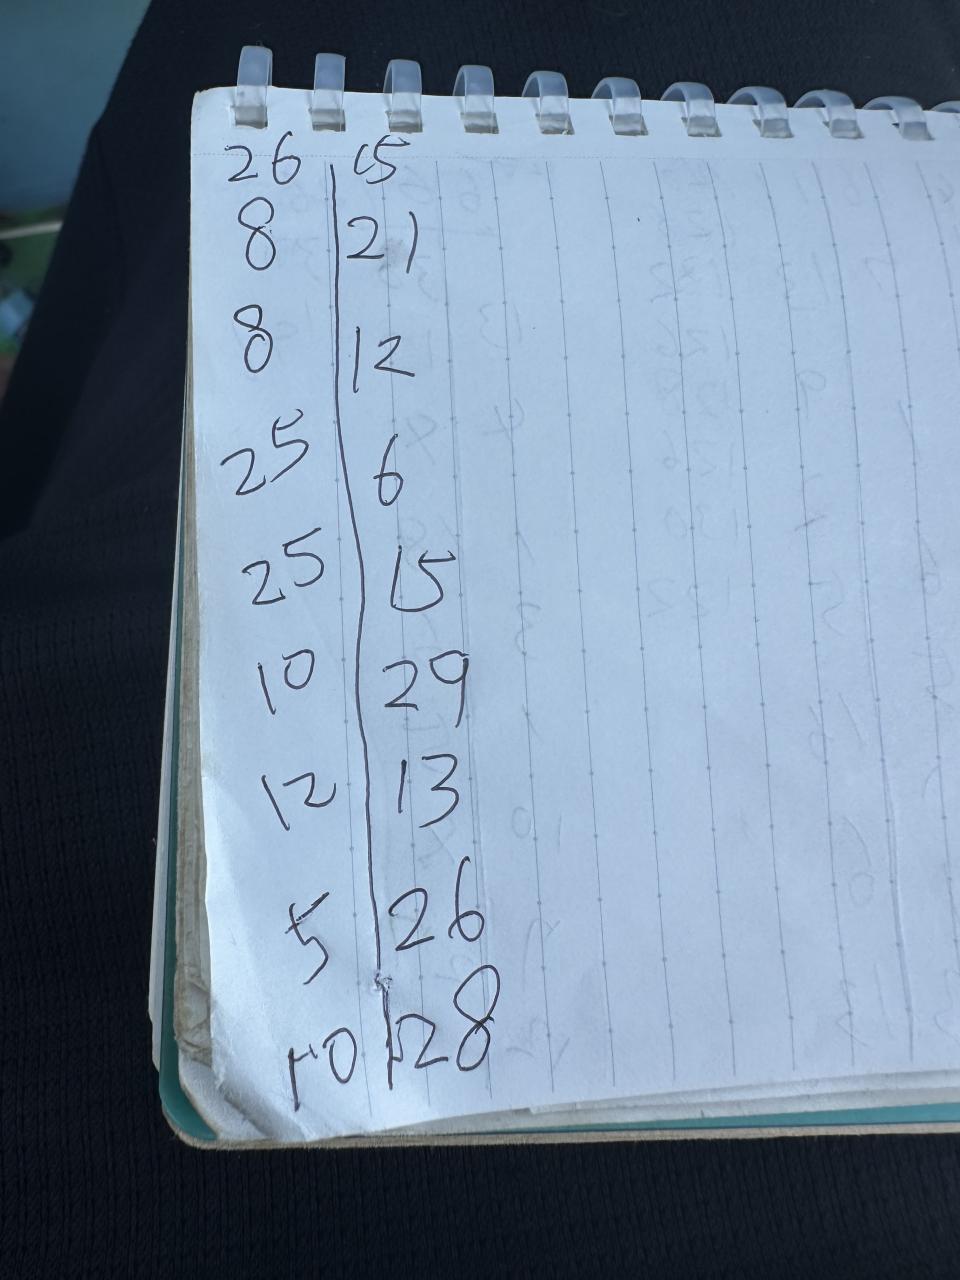 26 15
8 21
8 12
25 6
25 15
10 29
12 13
5 26
10 28